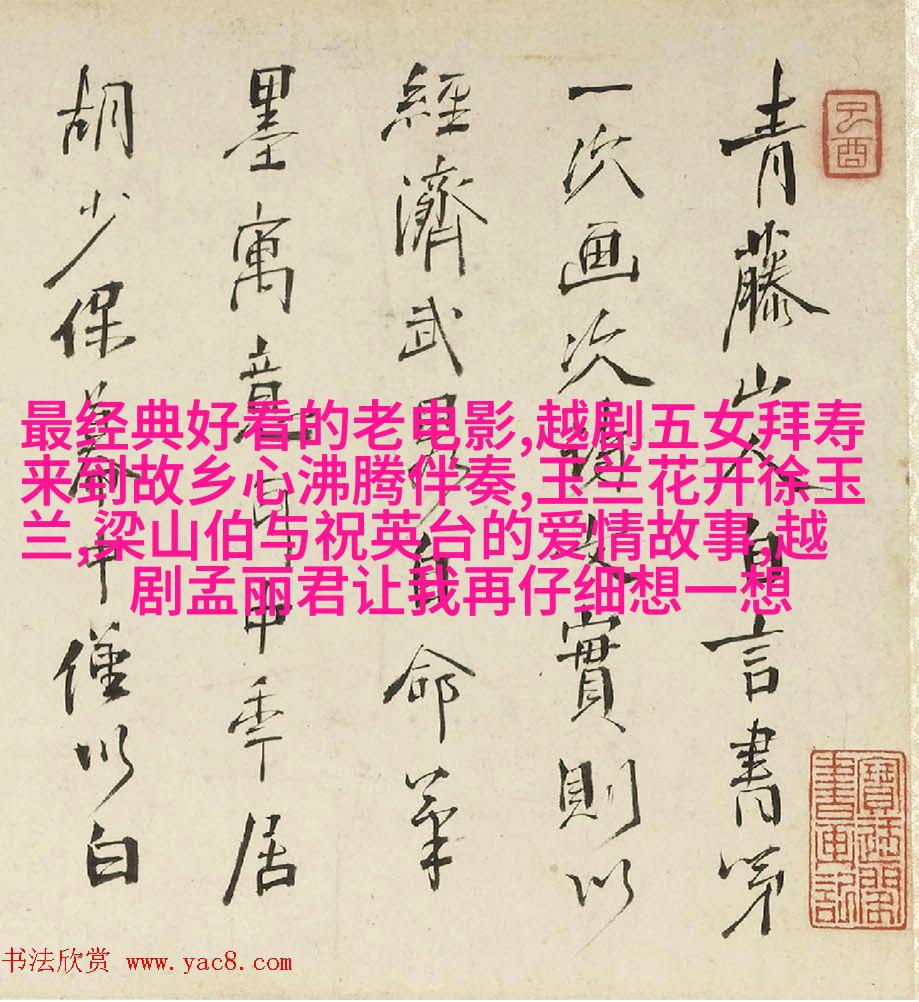 青藤山人自言書第
一次画次詩實則以
經濟武畧自命筆
墨寓意耳中季居
胡少保幕中僅以白
己酉
寶迂閣
書畫記
最经典好看的老电影,越剧五女拜寿
来到故乡心沸腾伴奏,玉兰花开徐玉
兰,梁山伯与祝英台的爱情故事,越
剧孟丽君让我再仔细想一想
书法欣赏 www.yac8.com